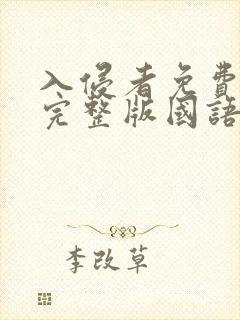 入侵者免費
完整版國語
李改草